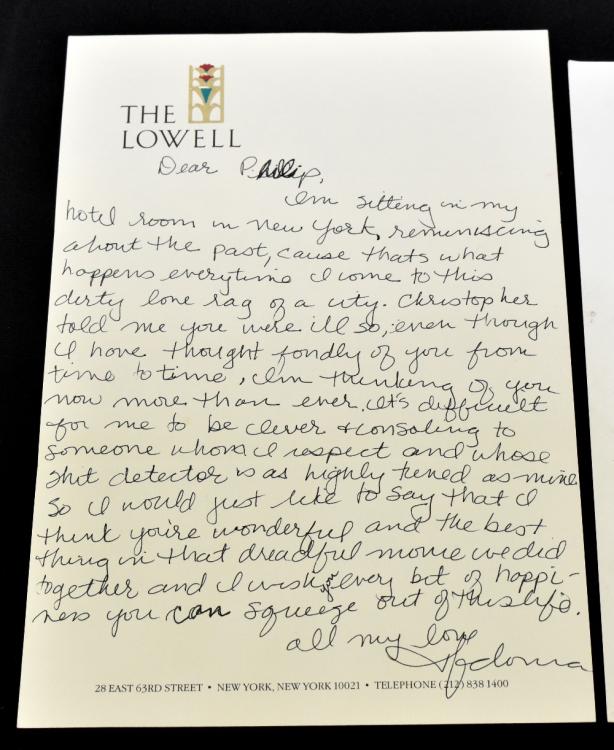 THE
LOWELL
Dear Phillip,
I'm sitting in my
hotel room in New York, reminiscing
about the past, cause thats what
happens everytime I come to this
dirty love rag of a city. Christopher
told me you were ill so, even though
I have thought fondly of you from
time to time, I'm thinking of you
now more than ever. It's difficult
for me to be clever + consoling to
someone whom I respect and whose
shit detector is as highly tuned as mine
so I would just like to say that I
think you're wonderful and the best
thing in that dreadful movie we did
together and I wish you every bit of happi-
ness you can squeeze out of this life.
all my love
Madonna
28 EAST 63RD STREET • NEW YORK, NEW YORK 10021 • TELEPHONE (212) 838 1400